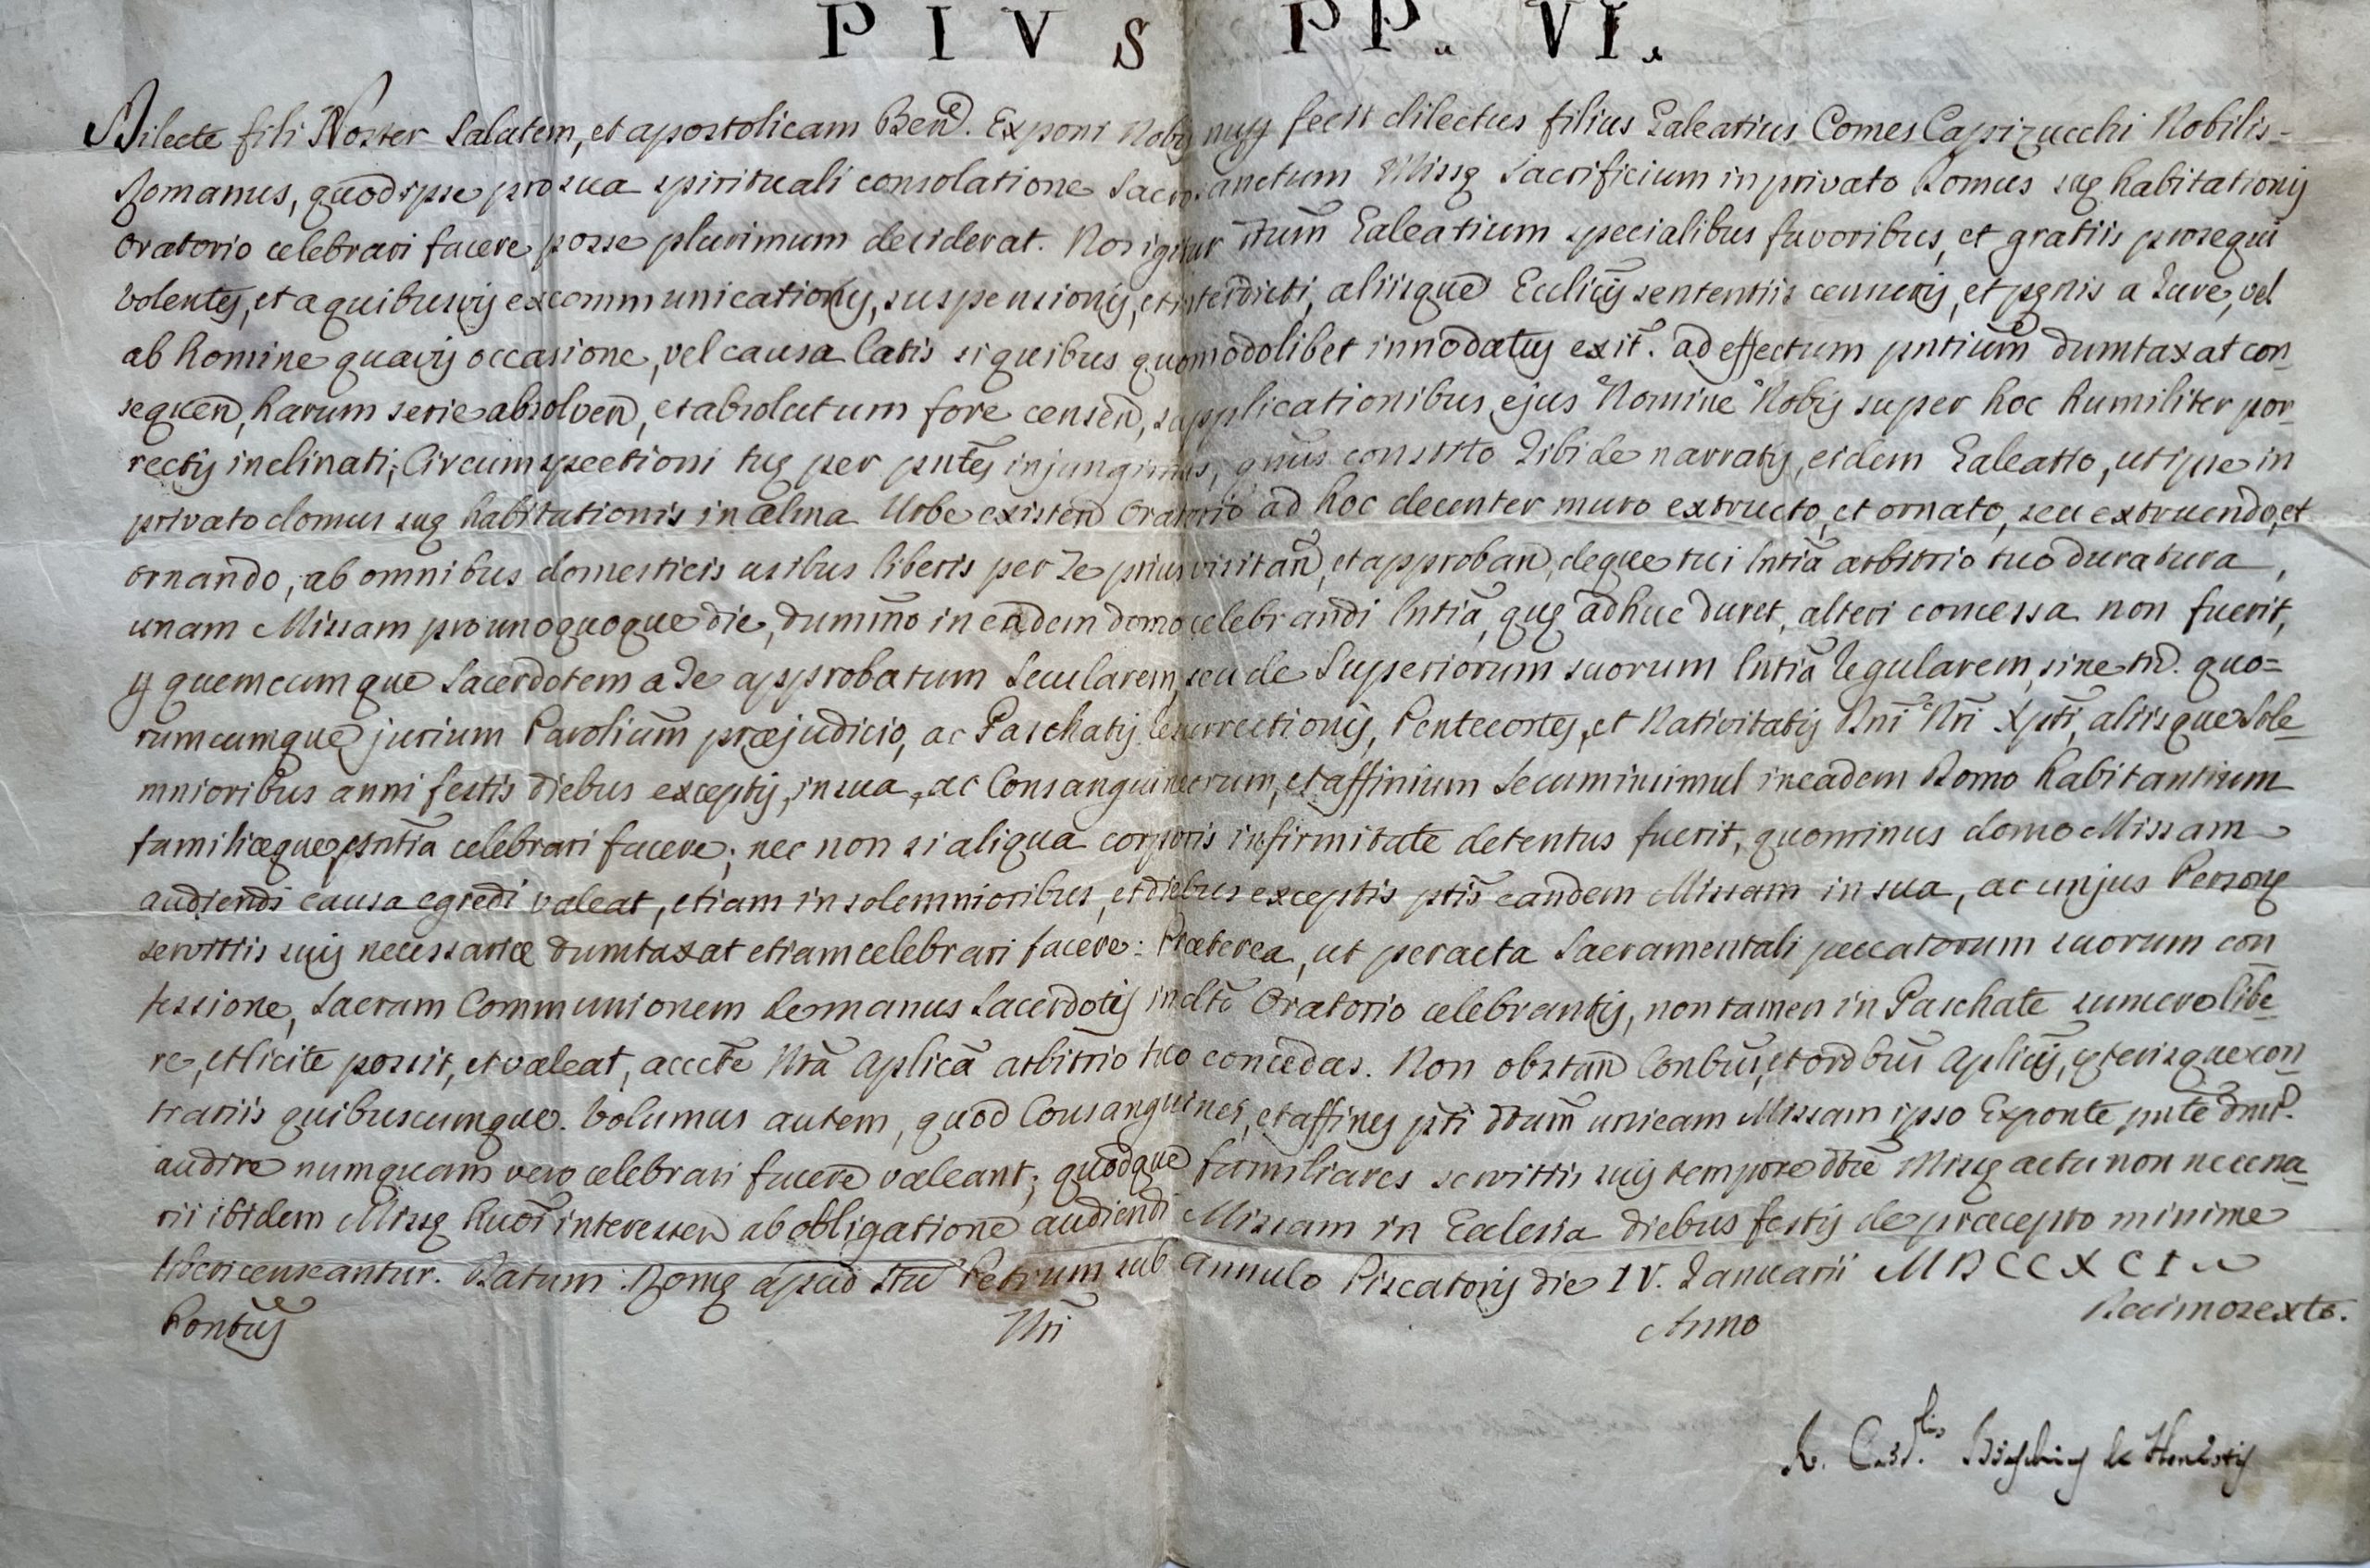 PIVS PP. VI.
Dilecte fili Noster Salutem, et apostolicam Ben̄. Exponi Nobis nuper fecit dilectus filius Galeatius Comes Capizucchi Nobilis
Romanus, quod ipse pro sua spirituali consolatione Sacrosanctum Missę Sacrificium in privato Domus suę habitationis
Oratorio celebrari facere posse plurimum desiderat. Nos igitur dtum̄ Galeatium specialibus favoribus, et gratiis prosequi
Volentes, et a quibusvis excommunicationis, suspensionis, et interdicti, aliisque Ecclic̄is sententiis censuris, et pęnis a Jure, vel
ab homine quavis occasione, vel causa latis si quibus quomodolibet innodatus exit̄. ad effectum pntium̄ dumtaxat con
sequen̄, harum serie absolven̄, et absolutum fore censen̄, supplicationibus ejus Nomine Nobis super hoc humiliter por
rectis inclinati, Circumspectioni tuę per pntes̄ injungimus, constito Tibi de narratis, eidem Galeatio, ut ipse in
privato domus suę habitationis in alma Urbe existen̄ Oratorio ad hoc decenter muro extructo, et ornato, seu extruendo, et
ornando, ab omnibus domesticis usibus liberis per Te prius visitan̄, et approban̄, deque tui lntia̅ arbitrio tuo duratura,
unam Missam pro unoquoque die, dummo̅ in eadem domo celebrandi lntia̅, quę adhuc duret, alteri concessa non fuerit,
p quemcumque Sacerdotem a Te approbatum Secularem, seu de Superiorum suorum lntia̅ Regularem, sine tn̄. quo=
rumcumque jurium Parolium̄ præjudicio, ac Paschatis Resurrectionis, Pentecostes, et Nativitatis Dni̅ Nri̅ Xpti̅, aliisque Sole
mnioribus anni festis diebus exceptis, in sua, ac Consanguineorum, et affinium Secum insimul in eadem Domo habitantium
familiæque pntia̅ celebrari facere; nec non si aliqua corporis infirmitate detentus fuerit, quominus domo Missam
audiendi causa egredi valeat, etiam in solemnioribus, et diebus exceptis ptis̅ eandem Missam in sua, ac unjus Personę
servitiis suis necessariæ dumtaxat etiam celebrari facere: Præterea, ut peracta Sacramentali peccatorum suorum con
fessione, Sacram Communionem de manus Sacerdotis in dto̅ Oratorio celebrantis, non tamen in Paschate sumere libe
re, et licite possit, et valeat, aucte̅ Nra̅ Aplica̅ arbitrio tuo concedas. Non obstan̄ Conbus̅, et ordbus̅ Aplicis̅, cęterisque con
trariis quibuscumque. Volumus autem, quod Consanguinei, et affines pti̅ dtam̅ unicam Missam ipso Exponte̅ pnte̅ dmt̅.
audire numquam vero celebrari facere valeant; quodque familiares servitiis suis tempore dtæ̅ Missę actu non necessa
rii ibidem Missę huōi interessen̄ ab obligatione audiendi Missam in Ecclesia diebus festis de præcepto minime
liberi censeantur. Datum Romę apud Stu̅ Petrum sub Annulo Piscatoris die IV. Januarii MDCCXCI
Pontus̅ Nri̅ Anno Decimosexto.
R. Card.lis Braschius de Honestis